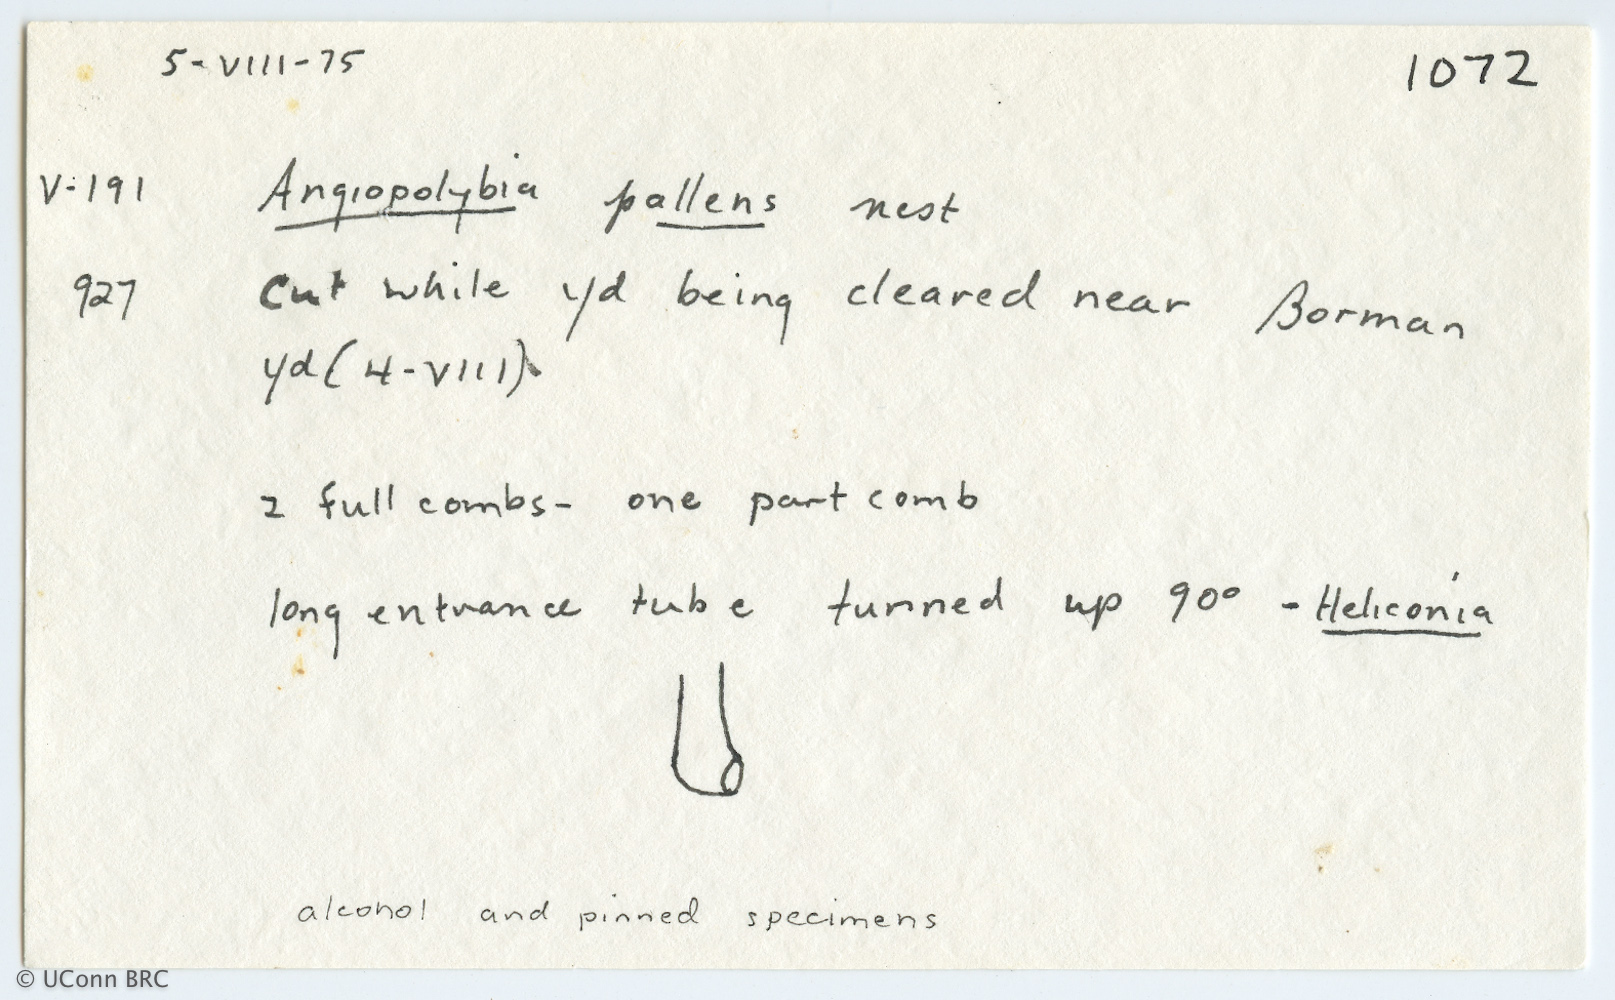 5-VIII-75 1072
V-191 Angiopolybia pallens nest
927 cut while yd being cleared near Borman
yd (4-VIII).
2 full combs - one part comb
long entrance tube turned up 90° - Heliconia
alcohol and pinned specimens
© UConn BRC